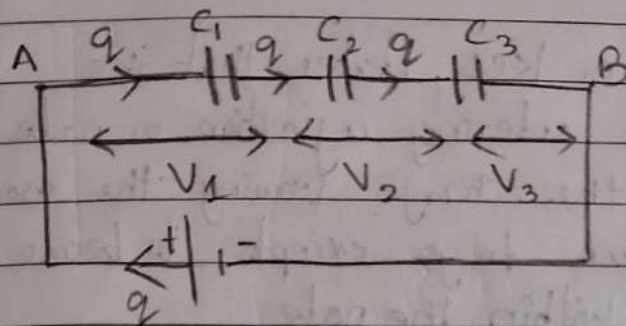 A q C₁ q C₂ q C₃ B
V₁ V₂ V₃
+ -
q